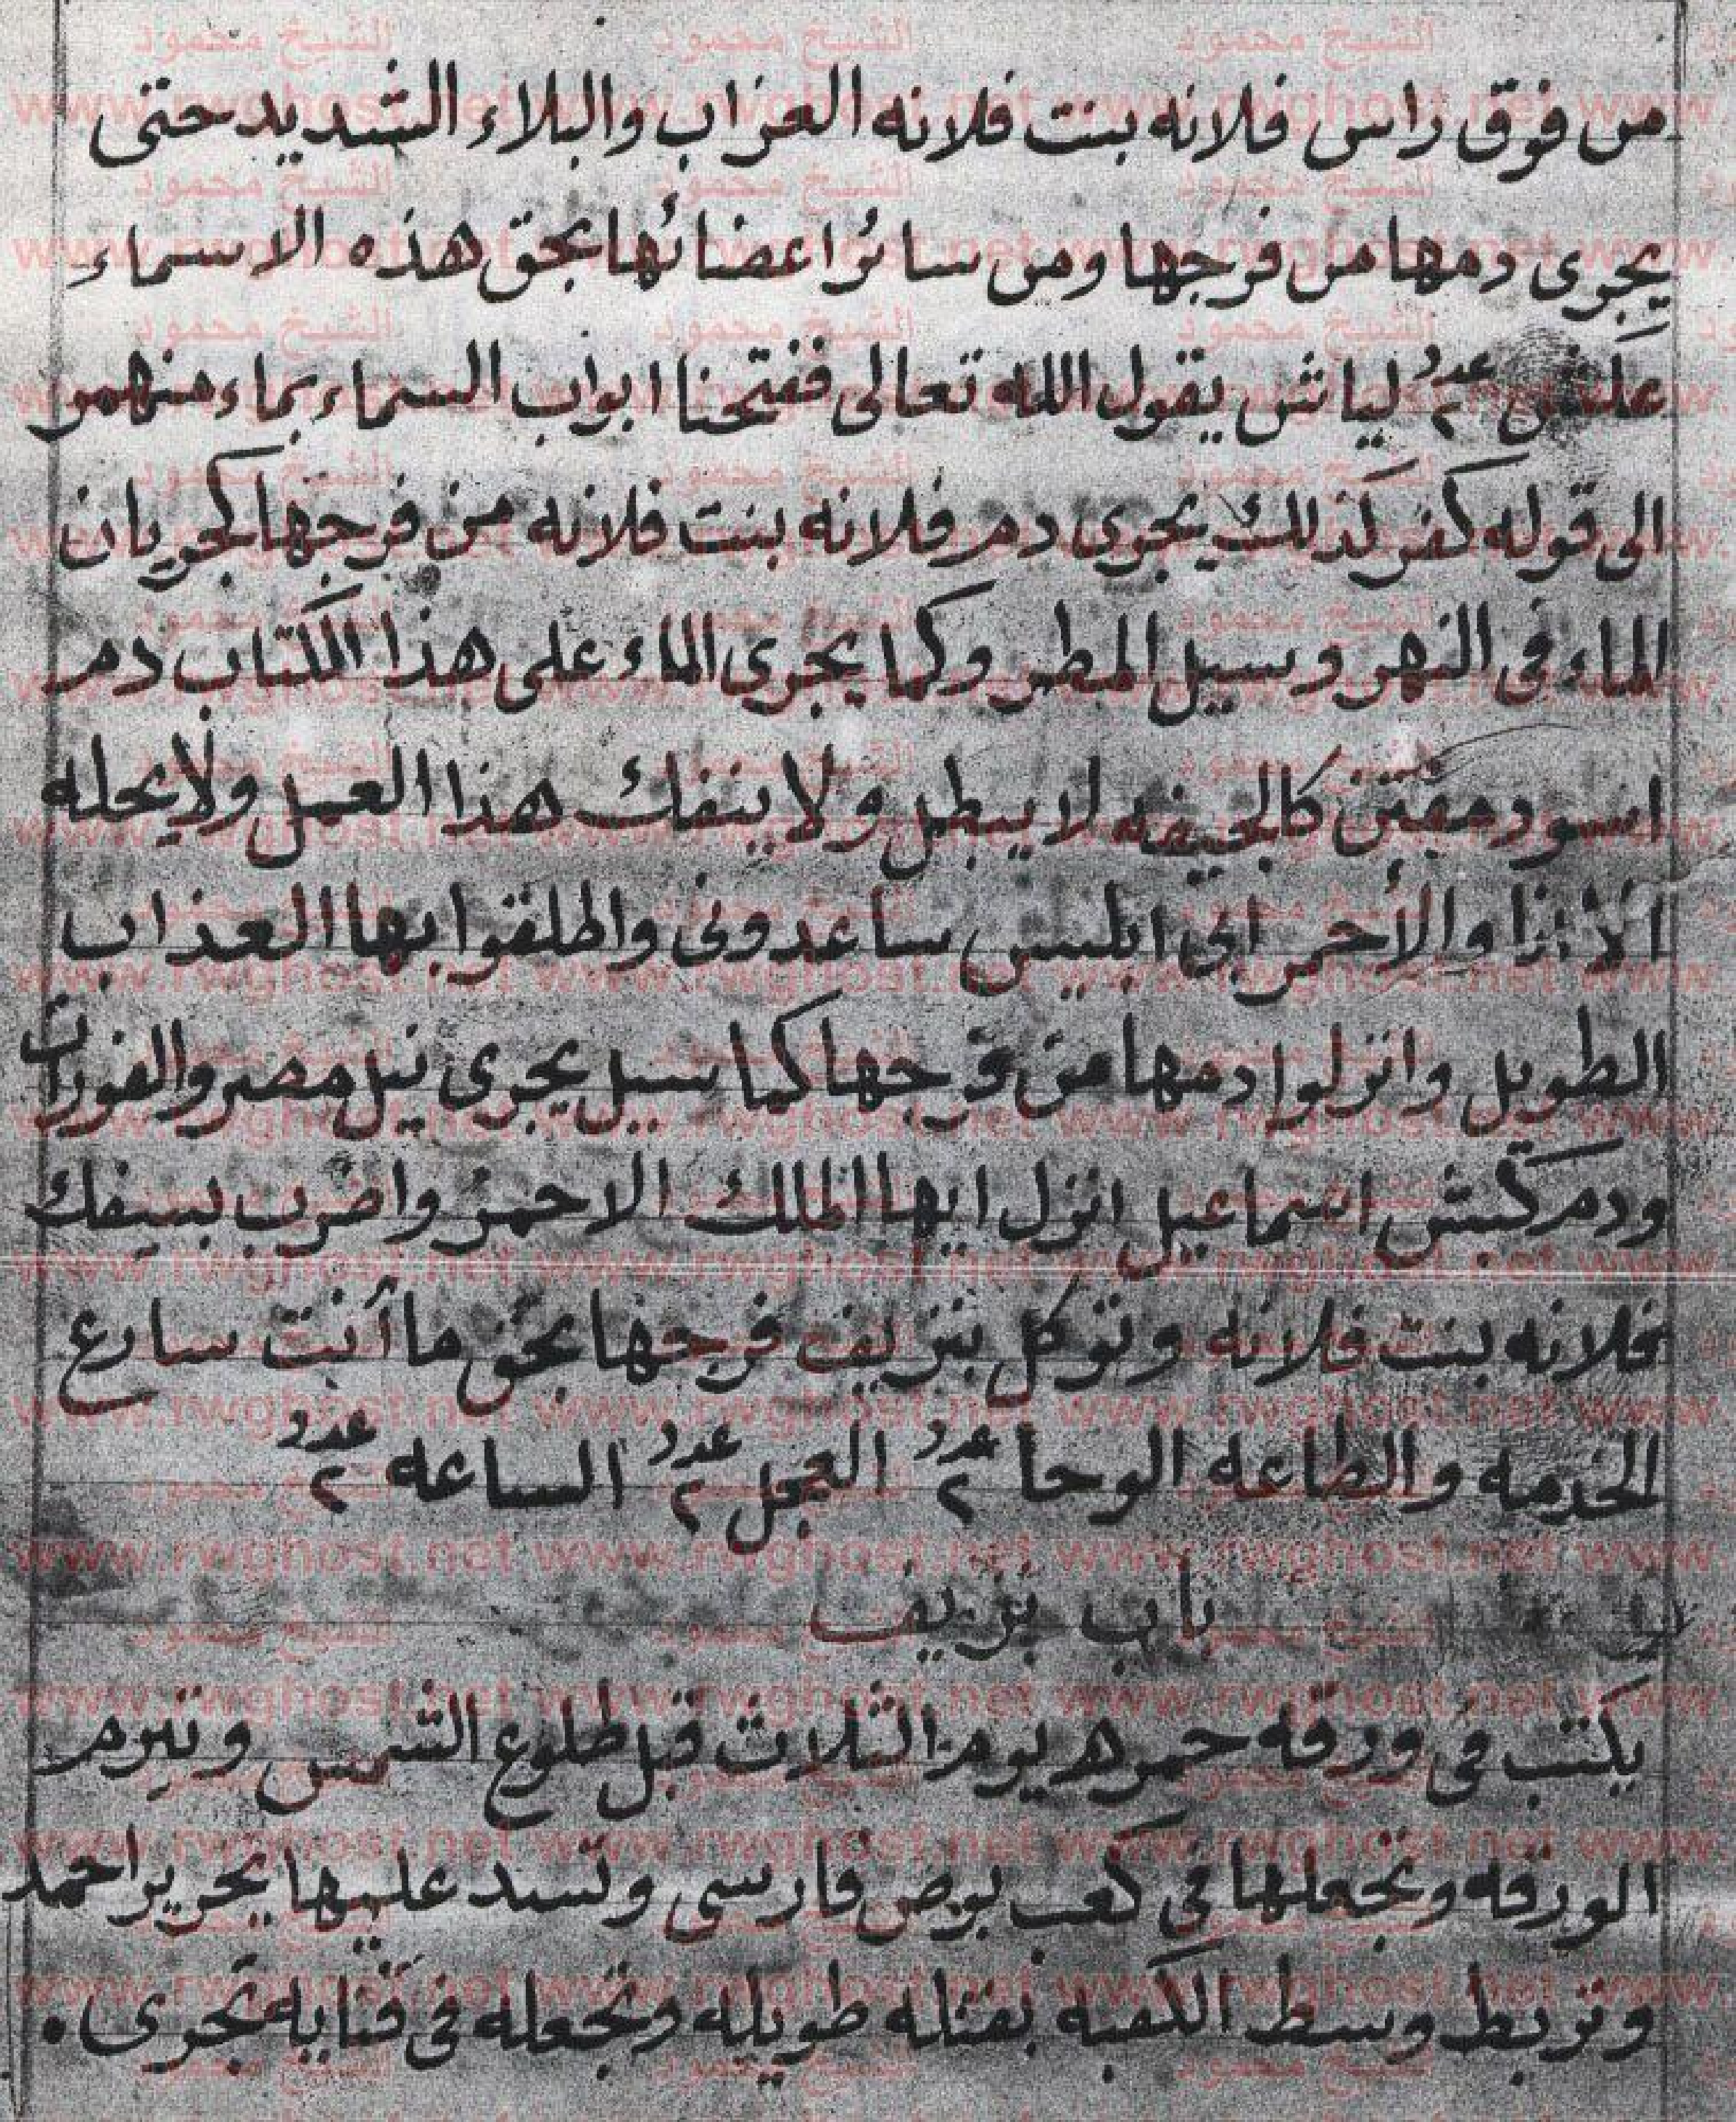 من فوق راس فلانه بنت فلانه العزاب والبلاء الشديد حتى
يجرى دمها من فرجها ومن سائر اعضائها بحق هذه الاسماء
عدد ٢ لياش يقول الله تعالى ففتحنا ابواب السماء بماء منهمر
الى قوله كفر كذلك يجرى دم فلانه بنت فلانه من فرجها كجريان
الماء فى النهر وسيل المطر وكما يجرى الماء على هذا الكتاب دم
اسود كالجيفه لا يبطل ولا ينفك هذا العمل ولا يحله
الا انا والأحمر ابى ابليس ساعدونى واطلقوا بها العذاب
الطويل وانزلوا دمها من فرجها كما سيل يجرى نيل مصر والفورات
ودم كبش اسماعيل انزل ايها الملك الاحمر واضرب بسيفك
فلانه بنت فلانه وتوكل بنزيف فرجها بحق ما أنت سارع
الخدمه والطاعه الوحا عدد ٢ العجل عدد ٢ الساعه عدد ٢
باب نزيف
يكتب فى ورقه حمره يوم الثلاث قبل طلوع الشمس وتبرم
الورقه وتجعلها فى كعب بوص فارسى وتسد عليها بحرير احمر
وتربط وسط الكعبه بفتله طويله وتجعله فى قنايه تجرى .
الشيخ محمود
www.rwghost.net